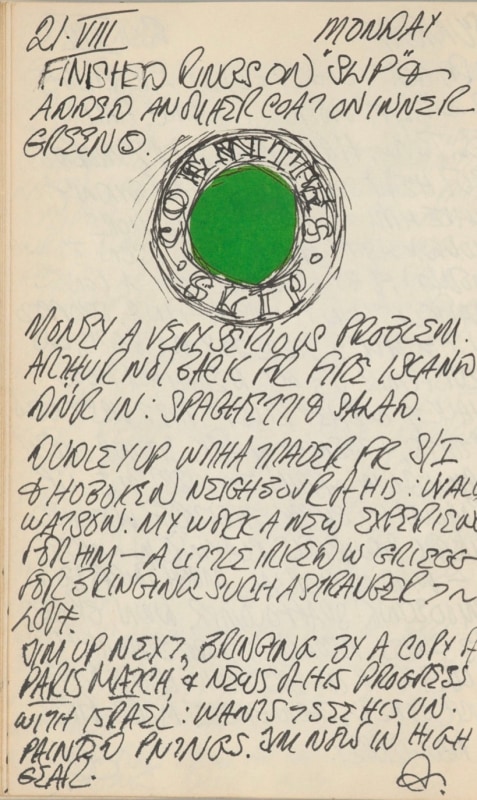 21·VIII MONDAY
FINISHED RINGS ON "SLIP" &
ADDED ANOTHER COAT ON INNER
GREENS.
COENTIES · SLIP ·
MONEY A VERY SERIOUS PROBLEM.
ARTHUR NOT BACK FR FIRE ISLAND
DNR IN: SPAGHETTI & SALAD.
DUDLEY UP WITH A TRADER FR S/I
& HOBOKEN NEIGHBOUR OF HIS: WALL
WATSON: MY WORK A NEW EXPERIEN
FOR HIM — A LITTLE IRKED W GRIEGG
FOR BRINGING SUCH A STRANGER TO
LOFT.
JIM UP NEXT, BRINGING BY A COPY OF
PARIS MATCH, & NEWS OF HIS PROGRESS
WITH ISRAEL: WANTS TO SEE HIS UN.
PAINTED PNTNGS. I'M NOW IN HIGH
GEAR.